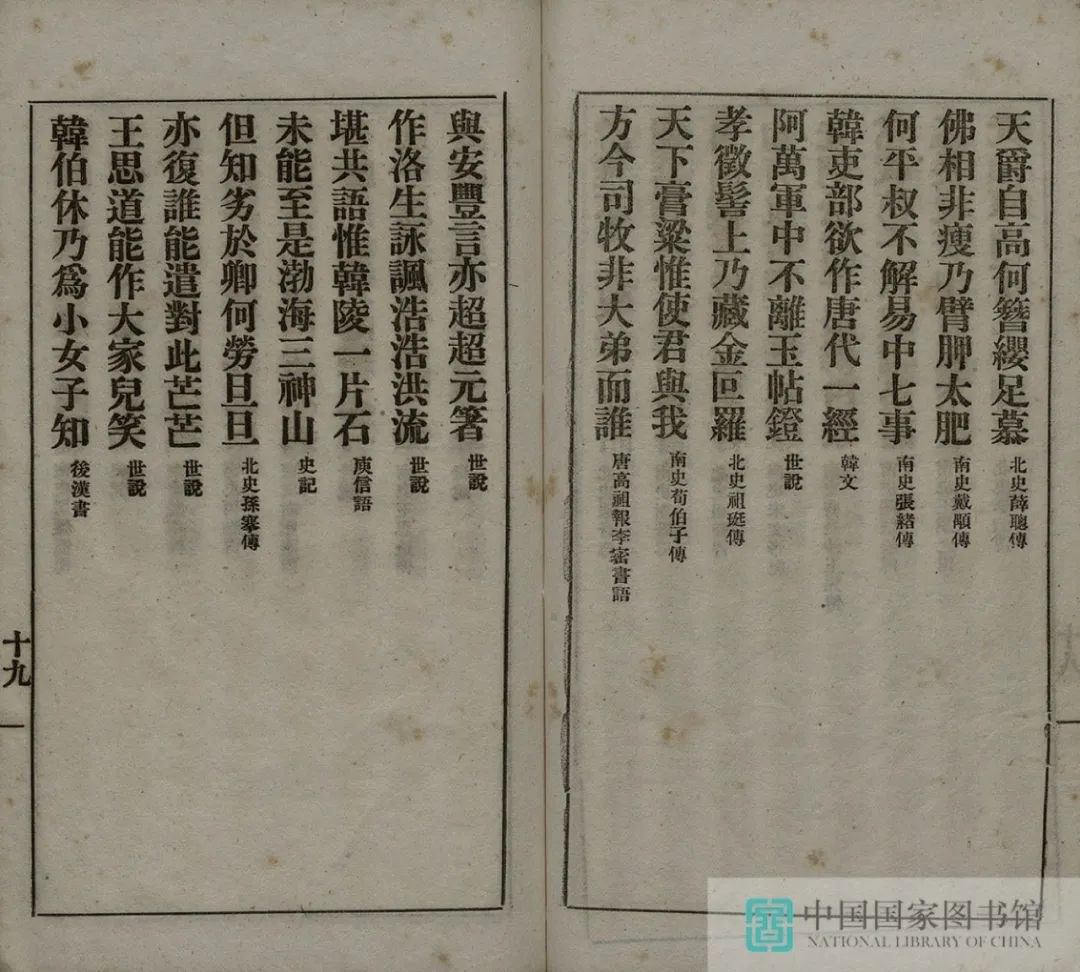 天爵自高何簪纓足慕 北史薛聰傳
佛相非瘦乃臂胛太肥 南史戴顒傳
何平叔不解易中七事 南史張緒傳
韓吏部欲作唐代一經 韓文
阿萬軍中不離玉帖鐙 世說
孝徵髻上乃藏金叵羅 北史祖珽傳
天下膏粱惟使君與我 南史荀伯子傳
方今司牧非大弟而誰 唐高祖報李密書語
與安豐言亦超超元箸 世說
作洛生詠諷浩浩洪流 世說
堪共語惟韓陵一片石 庾信語
未能至是渤海三神山 史記
但知劣於卿何勞旦旦 北史孫搴傳
亦復誰能遣對此芒芒 世說
王思道能作大家兒笑 世說
韓伯休乃為小女子知 後漢書
十九
中国国家图书馆
NATIONAL LIBRARY OF CHINA